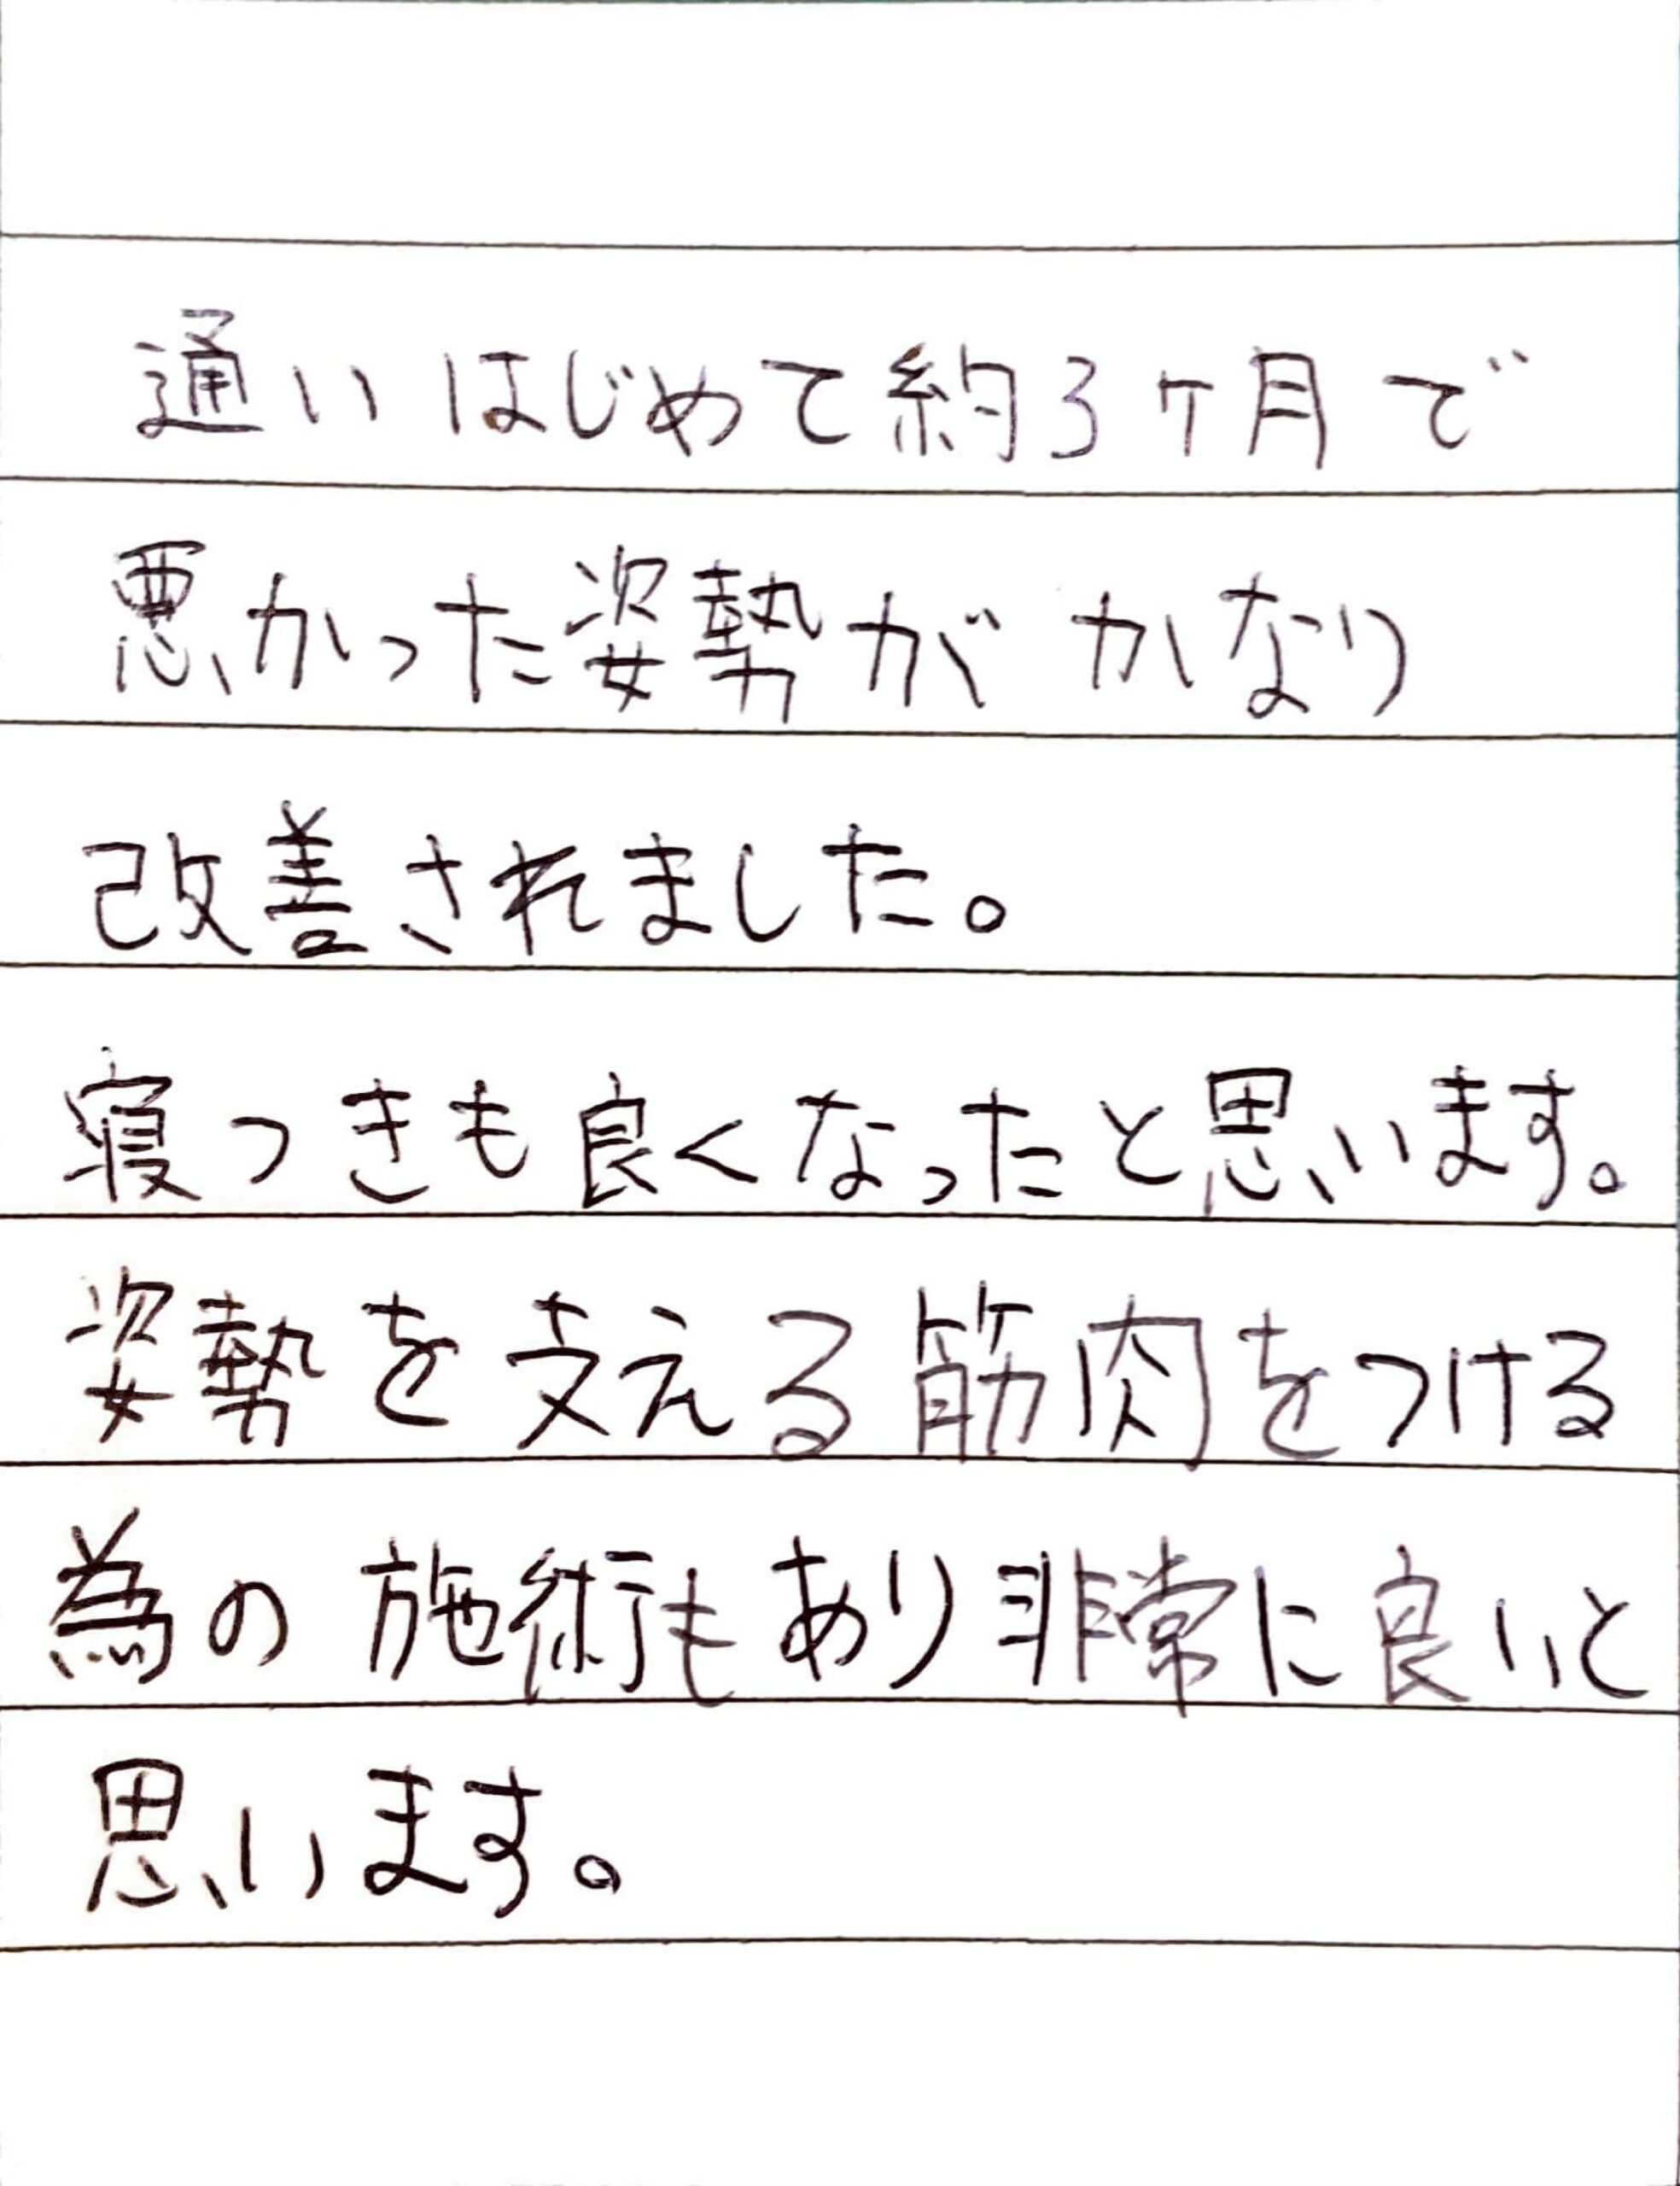 通いはじめて約3ヶ月で
悪かった姿勢がかなり
改善されました。
寝つきも良くなったと思います。
姿勢を支える筋肉をつける
為の施術もあり非常に良いと
思います。